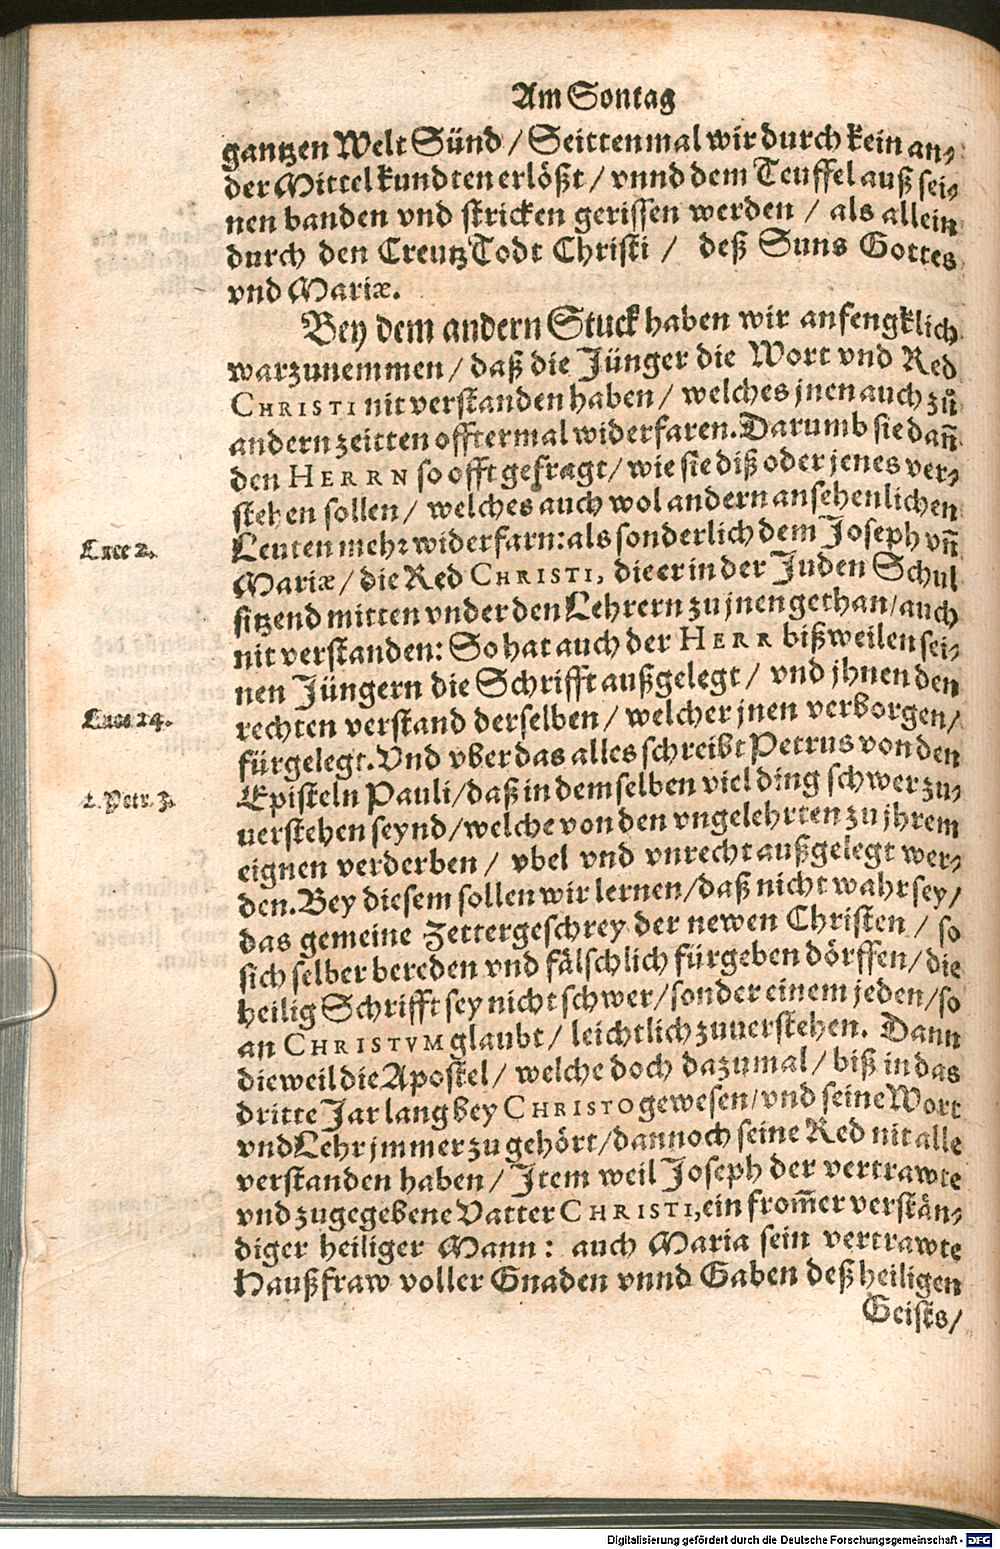 Am Sontag
gantzen Welt Sünd / Seittenmal wir durch kein an-
der Mittel kundten erlößt / vnnd dem Teuffel auß sei-
nen banden vnd stricken gerissen werden / als allein
durch den Creutz Todt Christi / deß Suns Gottes
vnd Mariæ.
Bey dem andern Stuck haben wir anfengklich
warzunemmen / daß die Jünger die Wort vnd Red
CHRISTI nit verstanden haben / welches jnen auch zů
andern zeitten offtermal widerfaren. Darumb sie dañ
den HERRN so offt gefragt / wie sie diß oder jenes ver-
stehen sollen / welches auch wol andern ansehenlichen
Luce 2.
Leuten mehr widerfarn: als sonderlich dem Joseph vñ
Mariæ / die Red CHRISTI, die er in der Juden Schul
sitzend mitten vnder den Lehrern zu jnen gethan / auch
nit verstanden: So hat auch der HERR bißweilen sei-
nen Jüngern die Schrifft außgelegt / vnd jhnen den
Luce 24.
rechten verstand derselben / welcher jnen verborgen /
fürgelegt. Vnd vber das alles schreibt Petrus von den
2. Petr. 3.
Episteln Pauli / daß in demselben viel ding schwer zu-
uerstehen seynd / welche von den vngelehrten zu jhrem
eignen verderben / vbel vnd vnrecht außgelegt wer-
den. Bey diesem sollen wir lernen / daß nicht wahr sey /
das gemeine Zettergeschrey der newen Christen / so
sich selber bereden vnd fälschlich fürgeben dörffen / die
heilig Schrifft sey nicht schwer / sonder einem jeden / so
an CHRISTVM glaubt / leichtlich zuuerstehen. Dann
dieweil die Apostel / welche doch dazumal / biß in das
dritte Jar lang bey CHRISTO gewesen / vnd seine Wort
vnd Lehr jmmerzu gehört / dannoch seine Red nit alle
verstanden haben / Item weil Joseph der vertrawte
vnd zugegebene Vatter CHRISTI, ein from̃er verstän-
diger heiliger Mann: auch Maria sein vertrawte
Haußfraw voller Gnaden vnnd Gaben deß heiligen
Geists /
Digitalisierung gefördert durch die Deutsche Forschungsgemeinschaft - DFG